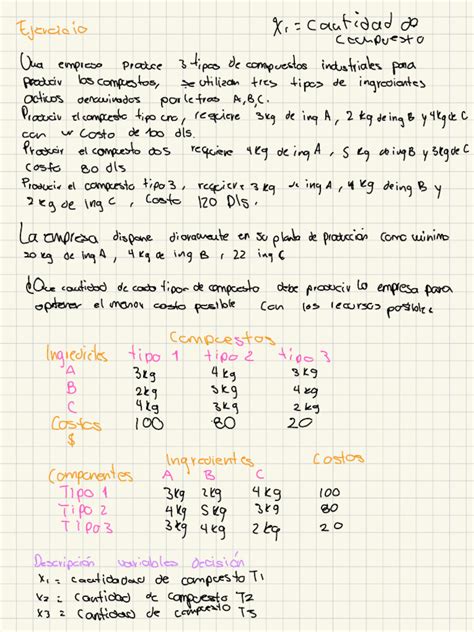 Ejercicio
X1 = Cantidad de
compuesto
Una empresa produce 3 tipos de compuestos industriales para
producir los compuestos, se utilizan tres tipos de ingredientes
activos denominados por letras A, B, C.
Producir el compuesto tipo uno, requiere 3kg de ing A, 2 kg de ing B y 4kg de C
con un costo de 100 dls.
Producir el compuesto dos requiere 4kg de ing A, 5 kg de ing B y 3kg de C
costo 80 dls
Producir el compuesto tipo 3, requiere 3 kg de ing A, 4 kg de ing B y
2 kg de ing C, costo 120 Dls.
La empresa dispone diariamente en su planta de producción como mínimo
20 kg de ing A, 4 kg de ing B, 22 ing C
¿Que cantidad de cada tipo de compuesto debe producir la empresa para
obtener el menor costo posible con los recursos posibles
Compuestos
Ingredientes tipo 1 tipo 2 tipo 3
A 3kg 4kg 3kg
B 2kg 5kg 4kg
C 4kg 3kg 2kg
Costos 100 80 20
$
Ingredientes Costos
Componentes A B C
Tipo 1 3kg 2kg 4kg 100
Tipo 2 4kg 5kg 3kg 80
Tipo 3 3kg 4kg 2kg 20
Descripción variables decisión
X1 = cantidad de compuesto T1
X2 = cantidad de compuesto T2
X3 = Cantidad de compuesto T3